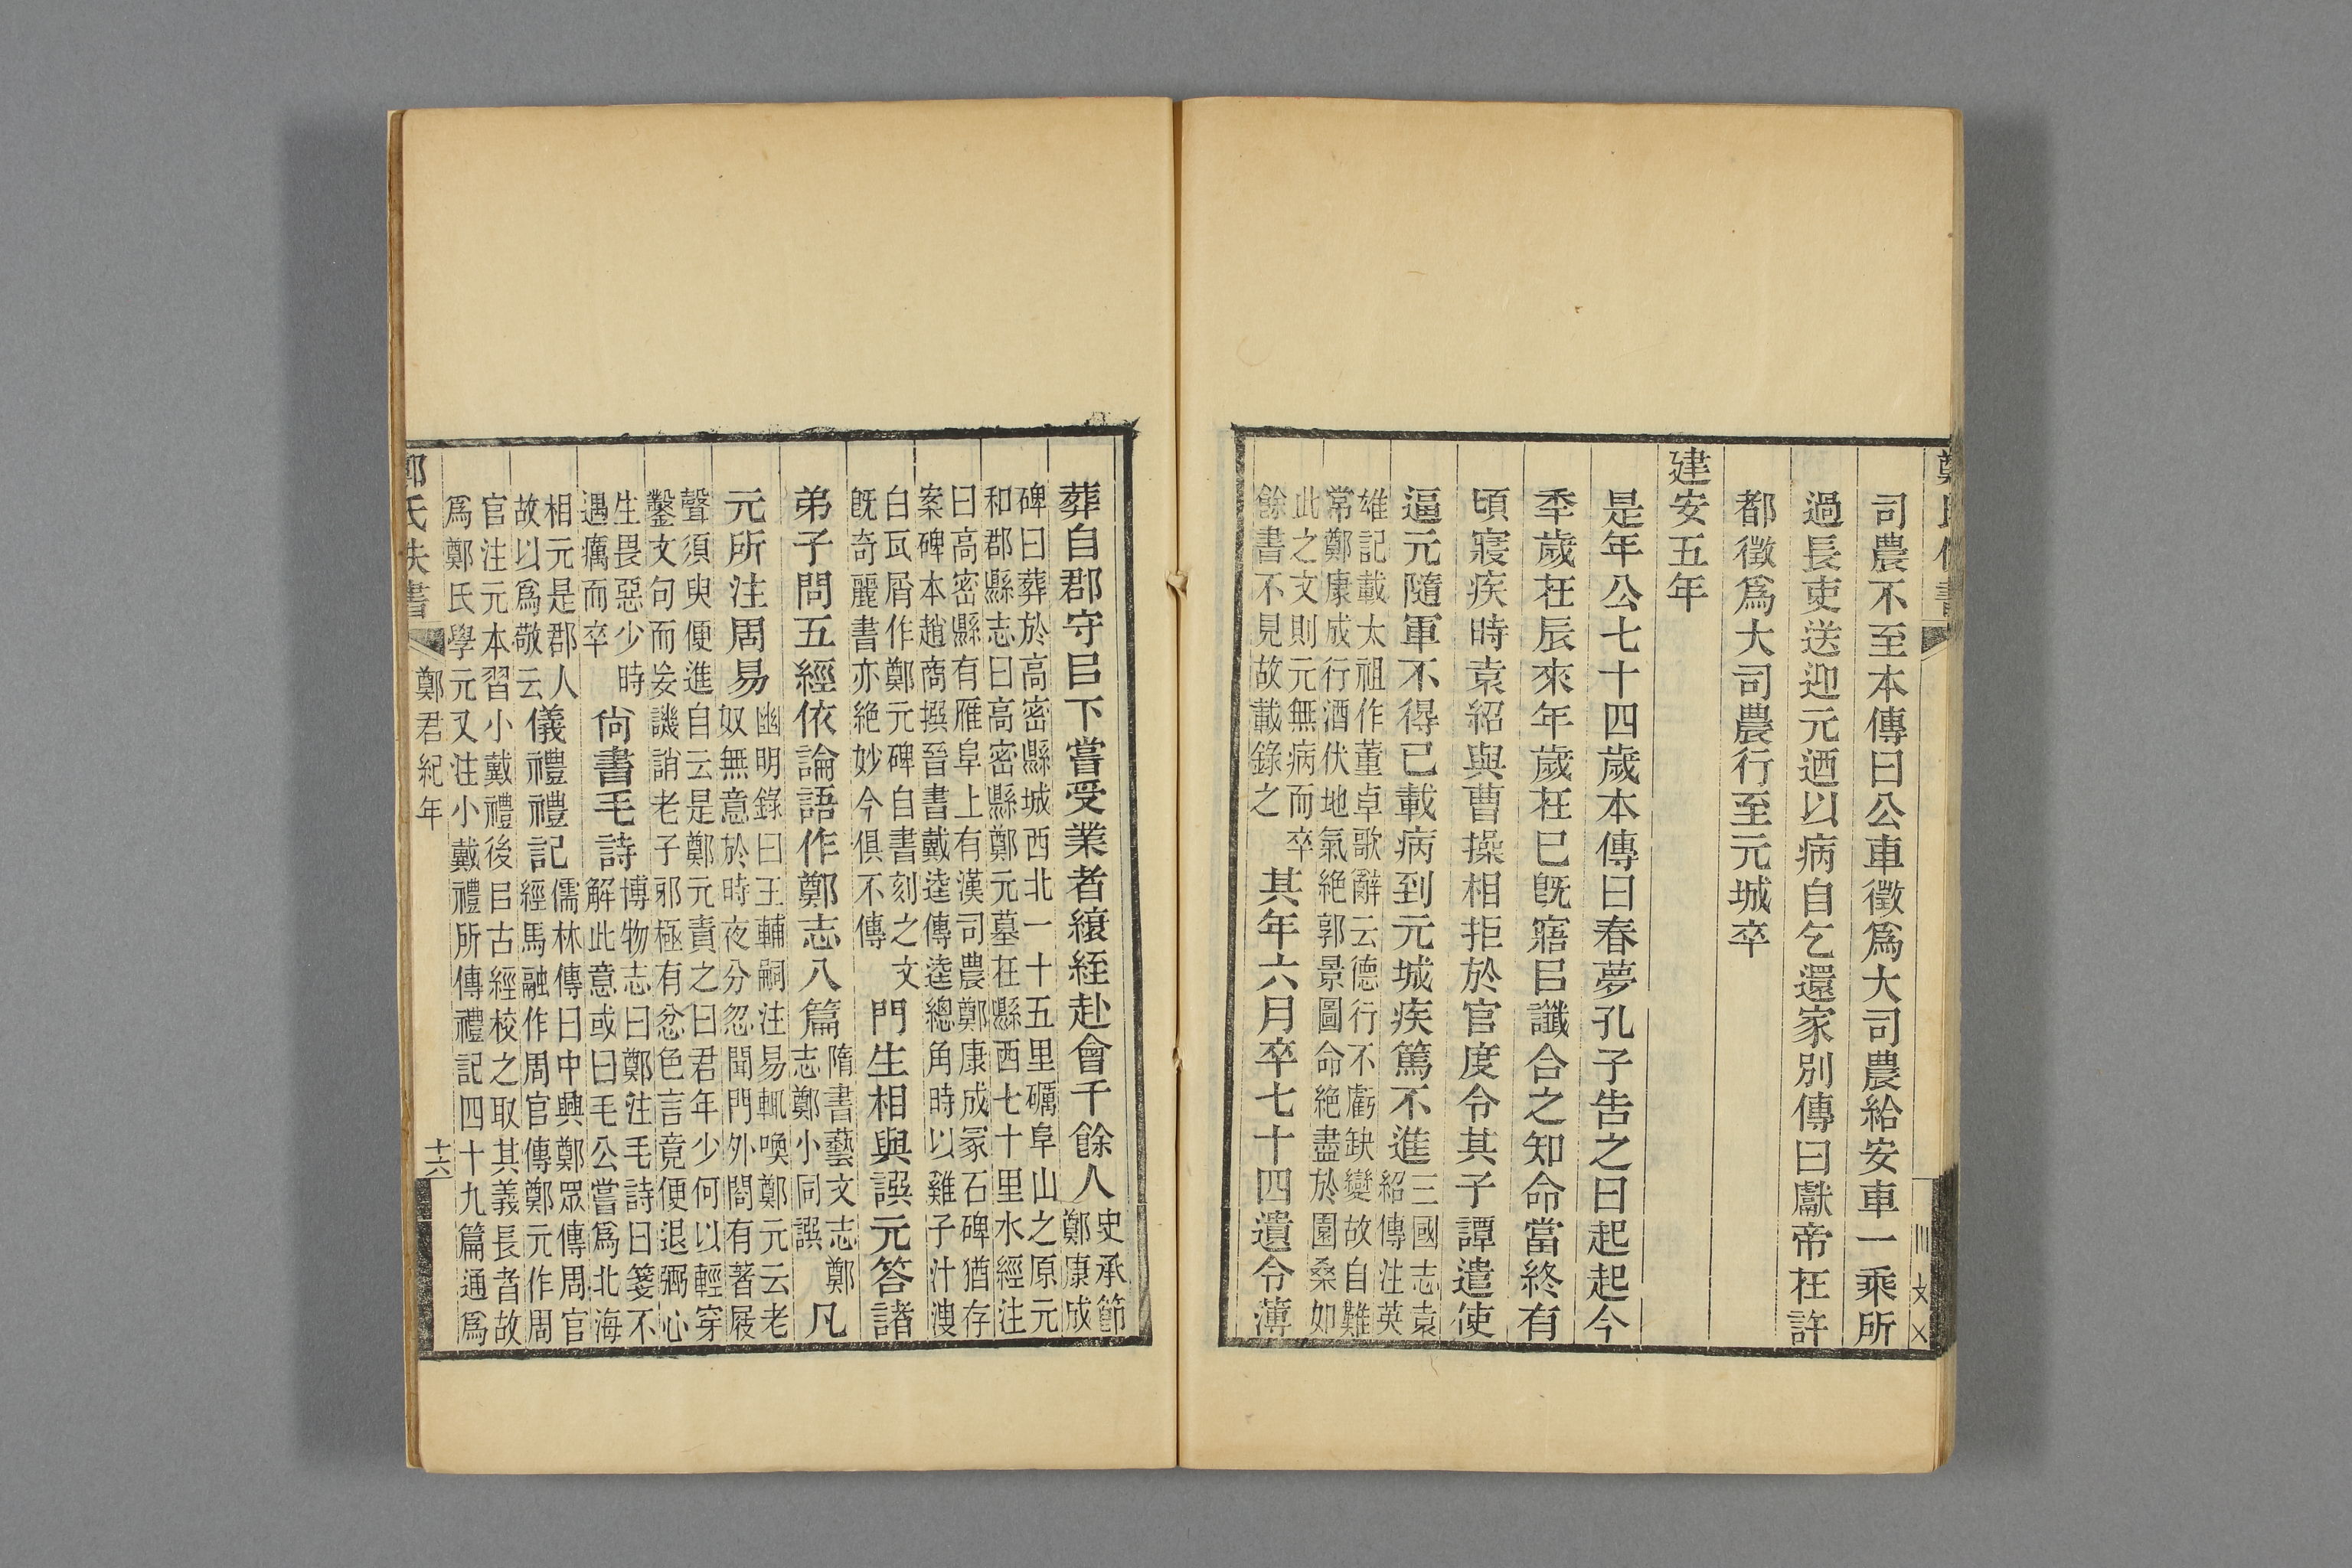 鄭氏佚書
司農不至本傳曰公車徵爲大司農給安車一乘所
過長吏送迎元迺以病自乞還家別傳曰獻帝在許
都徵爲大司農行至元城卒
建安五年
是年公七十四歲本傳曰春夢孔子告之曰起起今
秊歲在辰來年歲在巳旣寤㠯讖合之知命當終有
頃寢疾時袁紹與曹操相拒於官度令其子譚遣使
逼元隨軍不得已載病到元城疾篤不進三國志袁
紹傳注英
雄記載太祖作董卓歌辭云德行不虧缺變故自難
常鄭康成行酒伏地氣絕郭景圖命絕盡於園桑如
此之文則元無病而卒
餘書不見故載錄之
其年六月卒七十四遺令薄
葬自郡守㠯下嘗受業者縗絰赴會千餘人史承節
鄭康成
碑曰葬於高密縣城西北一十五里礪阜山之原元
和郡縣志曰高密縣鄭元墓在縣西七十里水經注
曰高密縣有雁阜上有漢司農鄭康成冢石碑猶存
案碑本趙商撰晉書戴逵傳逵總角時以雞子汁溲
白瓦屑作鄭元碑自書刻之文
旣奇麗書亦絕妙今俱不傳
門生相與譔元答諸
弟子問五經依論語作鄭志八篇隋書藝文志鄭
志鄭小同譔
凡
元所注周易幽明錄曰王輔嗣注易輒喚鄭元云老
奴無意於時夜分忽聞門外閣有著屐
聲須臾便進自云是鄭元責之曰君年少何以輕穿
鑿文句而妄譏誚老子邪極有忿色言竟便退弼心
生畏惡少時
遇癘而卒
尚書毛詩博物志曰鄭注毛詩曰箋不
解此意或曰毛公嘗爲北海
相元是郡人
故以爲敬云
儀禮禮記儒林傳曰中興鄭眾傳周官
經馬融作周官傳鄭元作周
官注元本習小戴禮後㠯古經校之取其義長者故
爲鄭氏學元又注小戴禮所傳禮記四十九篇通爲
氏佚書
鄭君紀年
十六